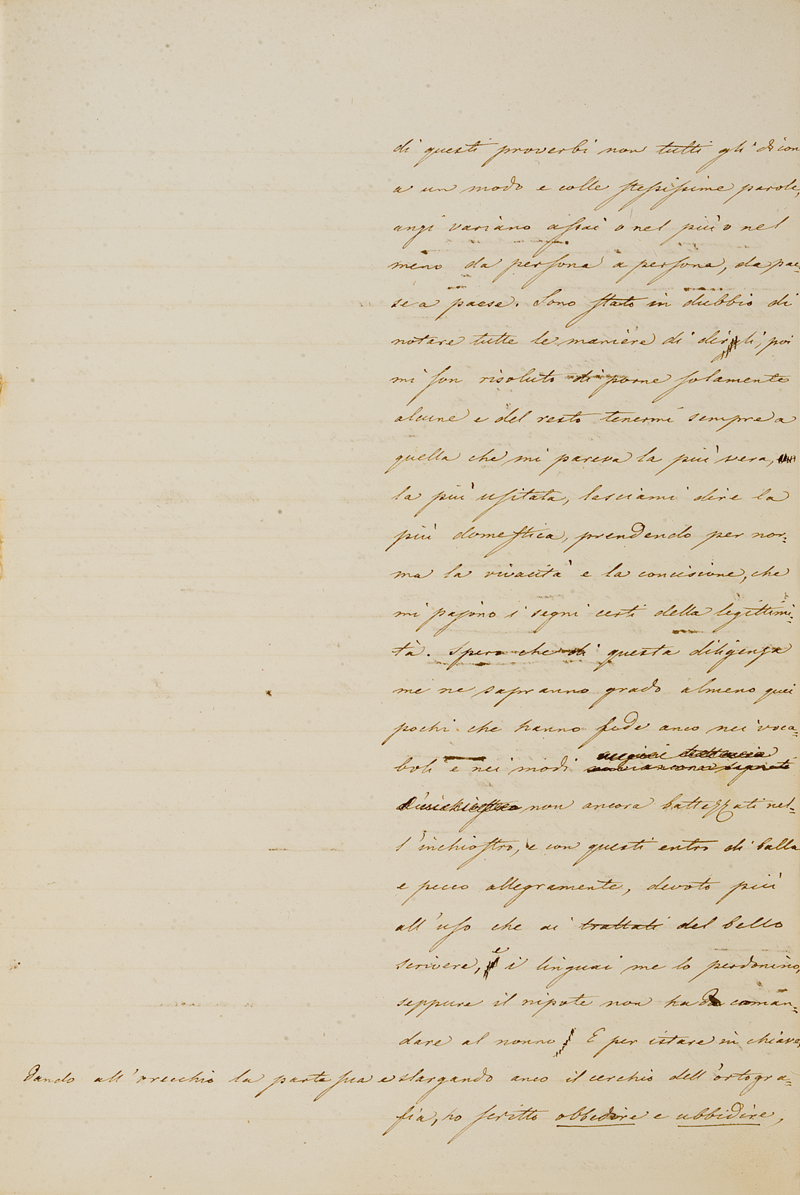 di questi proverbi non tutti gli dicon
a un modo e colle stessissime parole,
anzi variano assai o nel più o nel
meno da persona a persona, da pae=
se a paese. Sono stato in dubbio di
notare tutte le maniere di dirli, poi
mi son risoluto di porne solamente
alcune e del resto tenermi sempre a
quella che mi pareva la più vera,
la più usitata, lasciami dire la
più domestica, prendendo per nor=
ma la vivacità e la concisione, che
mi pajono i segni certi della legittimi=
tà. Spero che di questa diligenza
me ne sapranno grado almeno quei
pochi che hanno fede anco nei voca=
boli e nei modi
non ancora battezzati nel=
l'inchiostro, e con questi entro di balla
e pecco allegramente, devoto più
all'uso che ai trattati del bello
scrivere, e i linguai me lo perdonino,
seppure il nipote non ha da coman=
dare al nonno. E per istare in chiave,
dando all'orecchio la parte sua e slargando anco il cerchio dell'ortogra=
fia, ho scritto obbedire e ubbidire,